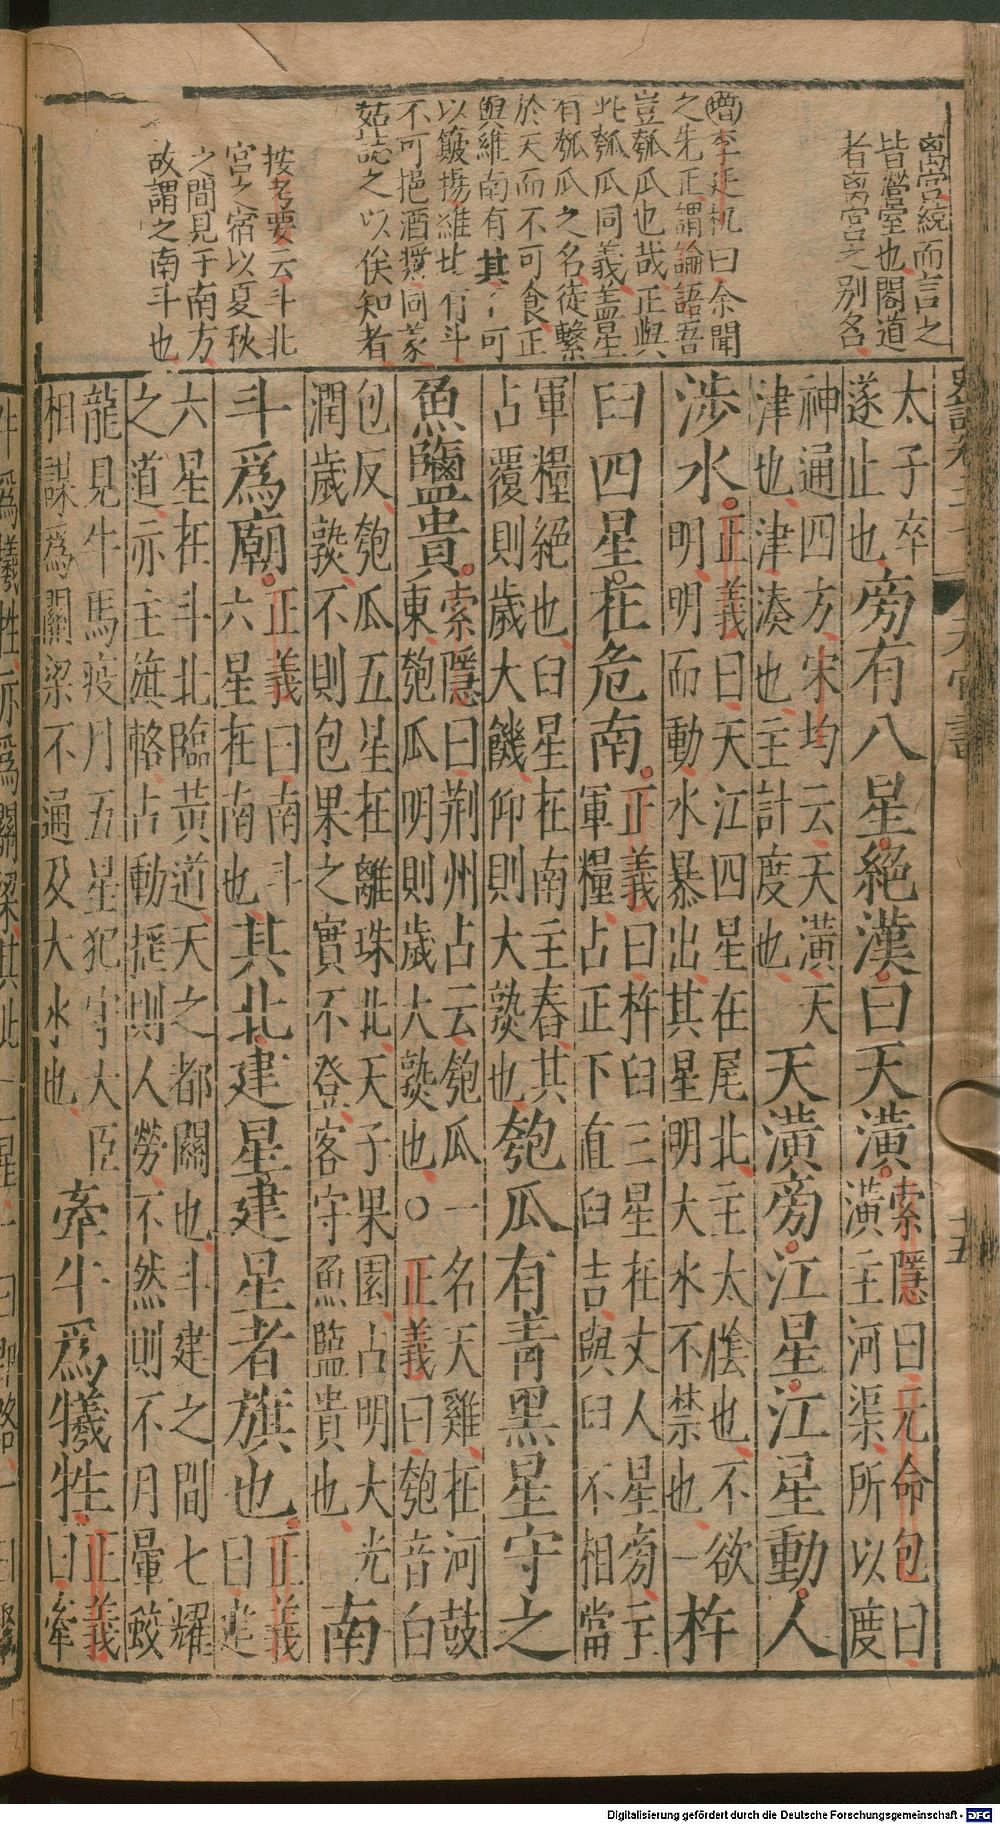 离宮統而言之
皆營室也閣道
者离宮之別名
增李廷机曰余聞
之先正謂論語吾
豈瓠瓜也哉正與
此瓠瓜同義盖星
有瓠瓜之名徒繫
於天而不可食正
與維南有其不可
以簸揚維北有斗
不可挹酒漿同義
姑誌之以俟知者
按考要云斗北
宮之宿以夏秋
之間見于南方
故謂之南斗也
太子卒
遂止也
旁有八星絕漢曰天潢
索隱曰元命包曰
潢主河渠所以度
神通四方宋均云天潢天
津也津湊也主計度也
天潢旁江星江星動人
涉水
正義曰天江四星在尾北主太陰也不欲
明明而動水暴出其星明大水不禁也一
杵
臼四星在危南
正義曰杵臼三星在丈人星旁主
軍糧占正下直臼吉與臼不相當
軍糧絕也臼星在南主舂其
占覆則歲大饑仰則大熟也
匏瓜有青黑星守之
魚鹽貴
索隱曰荆州占云匏瓜一名天雞在河鼓
東匏瓜明則歲大熟也○正義曰匏音白
包反匏瓜五星在離珠北天子果園占明大光
潤歲熟不則包果之實不登客守魚鹽貴也
南
斗爲廟
正義曰南斗
六星在南也
其北建星建星者旗也
正義
曰建
六星在斗北臨黃道天之都關也斗建之間七耀
之道亦主旗輅占動揺則人勞不然則不月暈蛟
龍見牛馬疫月五星犯守大臣
相謀爲關梁不通及大水也
牽牛爲犧牲
正義
曰牽
史記卷二十七
天官書
十五
Digitalisierung gefördert durch die Deutsche Forschungsgemeinschaft - DFG